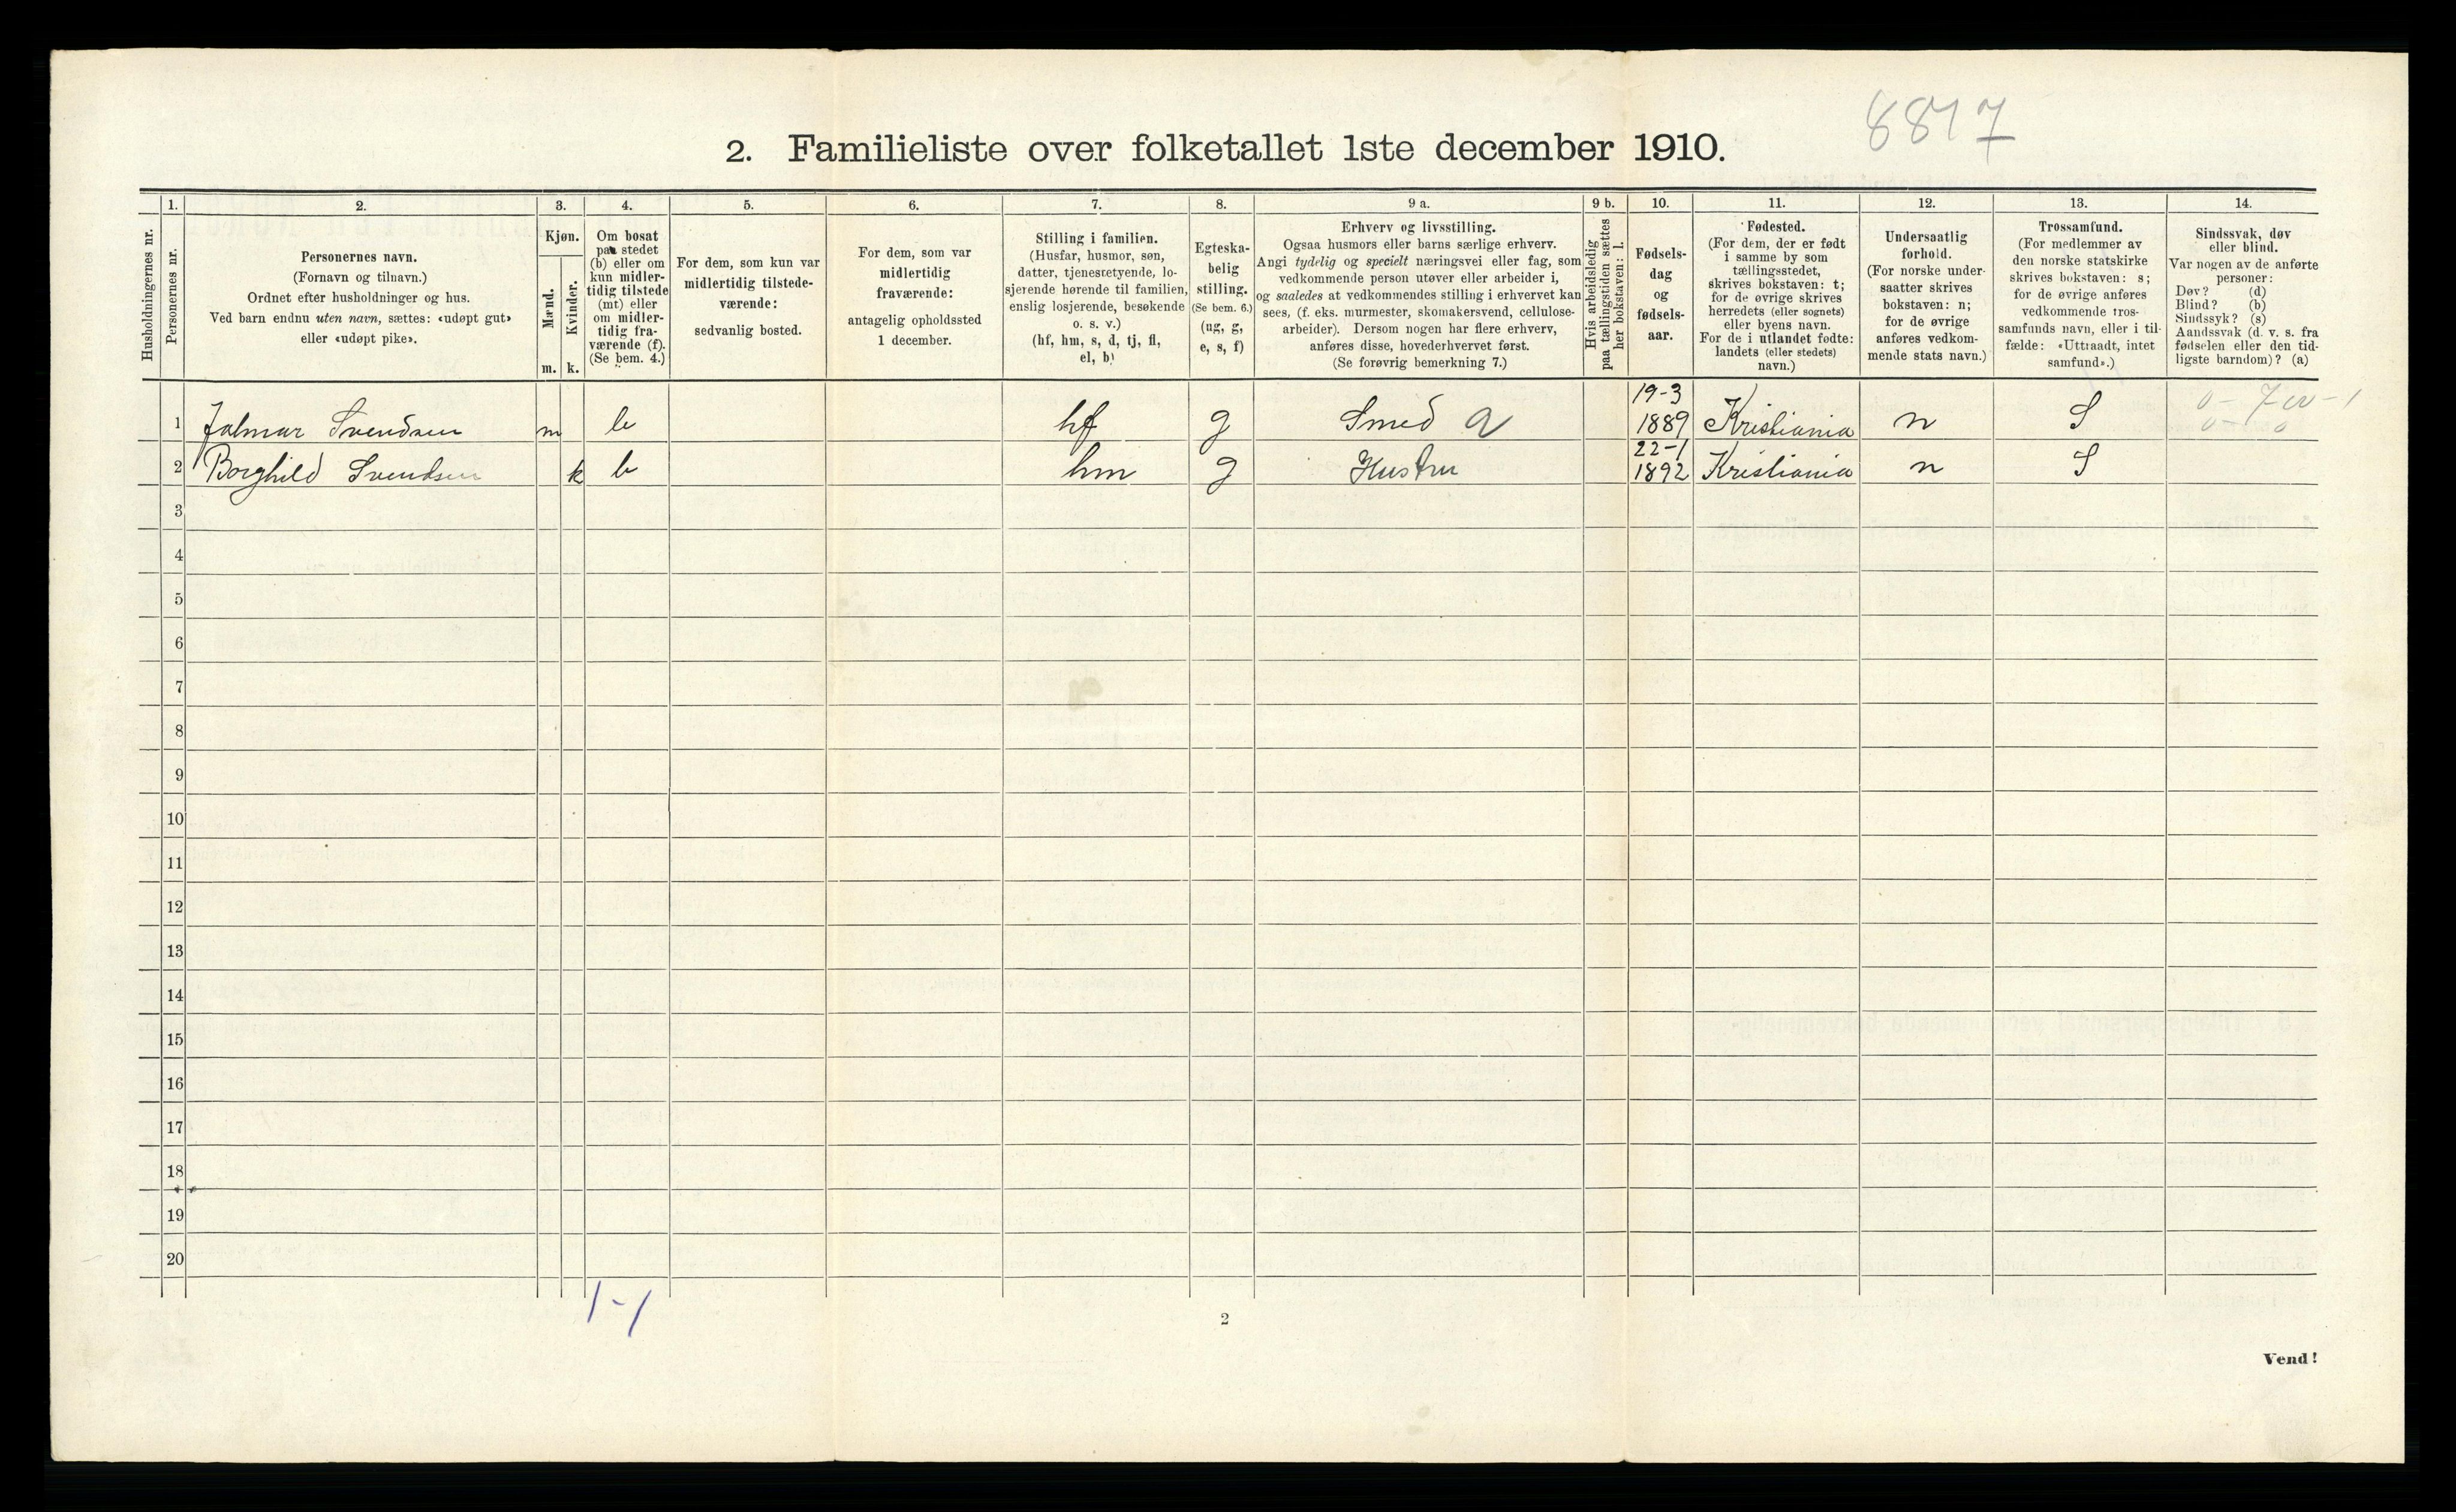 8817
2. Familieliste over folketallet 1ste december 1910.
1. 2. 3. 4. 5. 6. 7. 8. 9 a. 9 b. 10. 11. 12. 13. 14.
Husholdningernes nr.
Personernes nr.
Personernes navn.
(Fornavn og tilnavn.)
Ordnet efter husholdninger og hus.
Ved barn endnu uten navn, sættes: «udøpt gut»
eller «udøpt pike».
Kjøn.
Mænd.
Kvinder.
m. k.
Om bosat
paa stedet
(b) eller om
kun midler-
tidig tilstede
(mt) eller
om midler-
tidig fra-
værende (f).
(Se bem. 4.)
For dem, som kun var
midlertidig tilstede-
værende:
sedvanlig bosted.
For dem, som var
midlertidig
fraværende:
antagelig opholdssted
1 december.
Stilling i familien.
(Husfar, husmor, søn,
datter, tjenestetyende, lo-
sjerende hørende til familien,
enslig losjerende, besøkende
o. s. v.)
(hf, hm, s, d, tj, fl,
el, b)
Egteska-
belig
stilling.
(Se bem. 6.)
(ug, g,
e, s, f)
Erhverv og livsstilling.
Ogsaa husmors eller barns særlige erhverv.
Angi tydelig og specielt næringsvei eller fag, som
vedkommende person utøver eller arbeider i,
og saaledes at vedkommendes stilling i erhvervet kan
sees, (f. eks. murmester, skomakersvend, cellulose-
arbeider). Dersom nogen har flere erhverv,
anføres disse, hovederhvervet først.
(Se forøvrig bemerkning 7.)
Hvis arbeidsledig
paa tællingstiden sættes
her bokstaven: l.
Fødsels-
dag
og
fødsels-
aar.
Fødested.
(For dem, der er født
i samme by som
tællingsstedet,
skrives bokstaven: t;
for de øvrige skrives
herredets (eller sognets)
eller byens navn.
For de i utlandet fødte:
landets (eller stedets)
navn.)
Undersaatlig
forhold.
(For norske under-
saatter skrives
bokstaven: n;
for de øvrige
anføres vedkom-
mende stats navn.)
Trossamfund.
(For medlemmer av
den norske statskirke
skrives bokstaven: s;
for de øvrige anføres
vedkommende tros-
samfunds navn, eller i til-
fælde: «Uttraadt, intet
samfund».)
Sindssvak, døv
eller blind.
Var nogen av de anførte
personer:
Døv? (d)
Blind? (b)
Sindssyk? (s)
Aandssvak (d. v. s. fra
fødselen eller den tid-
ligste barndom)? (a)
1 Jalmar Svendsen m b hf g Smed a 19-3 1889 Kristiania n S
2 Borghild Svendsen k b hm g Hustru 22-1 1892 Kristiania n S
3
4
5
6
7
8
9
10
11
12
13
14
15
16
17
18
19
20
1-1
2
Vend!